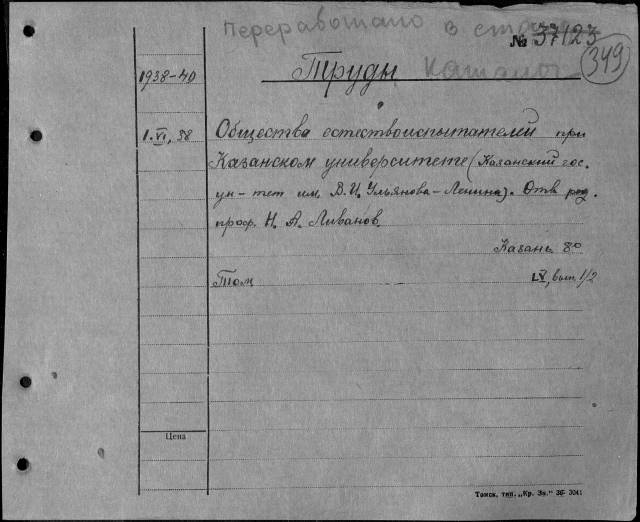 переработано в
№ 37123
349
Труды
1938-40
1.VI, 58 Общества естествоиспытателей при
Казанском университете (Казанский гос.
ун-тет им. В. И. Ульянова-Ленина). Отв. ред.
проф. Н. А. Ливанов.
Казань 8°
Том LV, вып. 1/2
Цена
Томск, тип. „Кр. Зн.“ 36- 3041